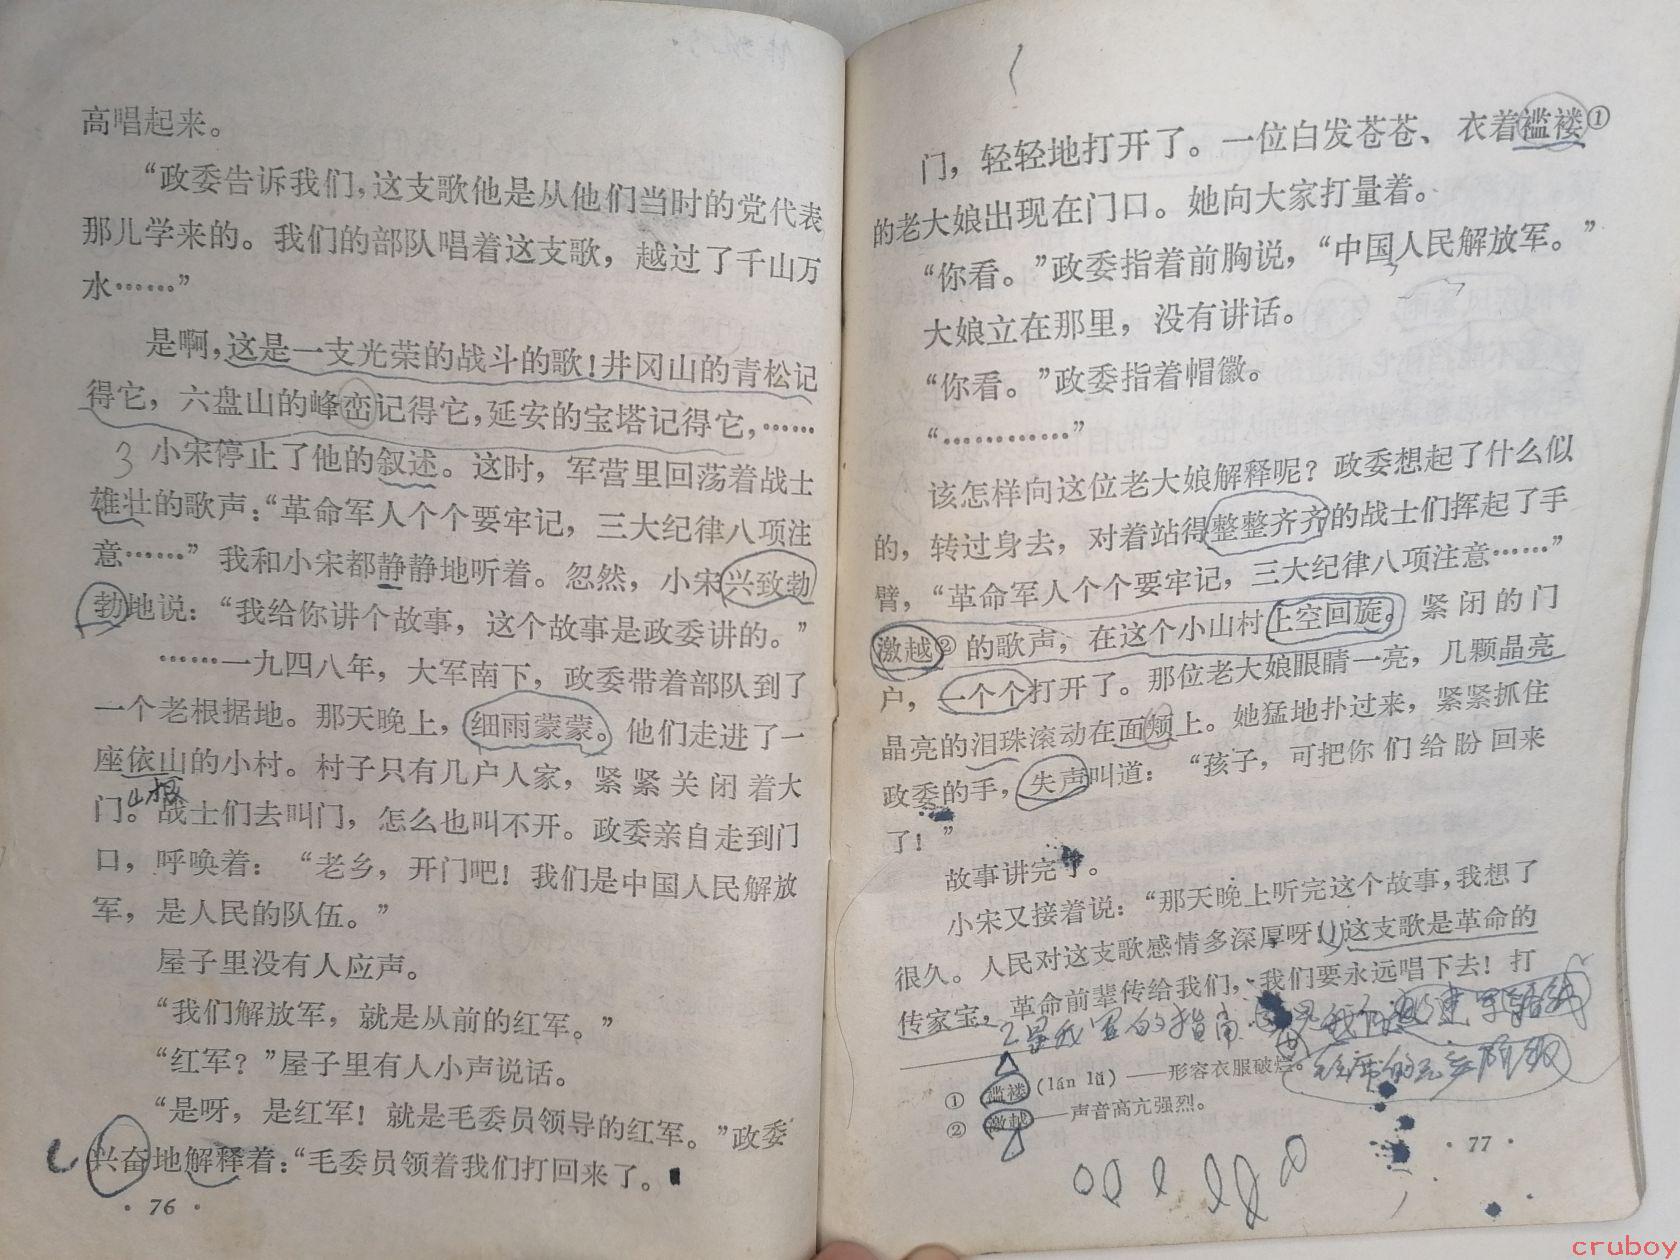 高唱起来。
“政委告诉我们，这支歌他是从他们当时的党代表
那儿学来的。我们的部队唱着这支歌，越过了千山万
水……”
是啊，这是一支光荣的战斗的歌！井冈山的青松记
得它，六盘山的峰峦记得它，延安的宝塔记得它，……
3
小宋停止了他的叙述。这时，军营里回荡着战士
雄壮的歌声：“革命军人个个要牢记，三大纪律八项注
意……”我和小宋都静静地听着。忽然，小宋兴致勃
勃地说：“我给你讲个故事，这个故事是政委讲的。”
……一九四八年，大军南下，政委带着部队到了
一个老根据地。那天晚上，细雨蒙蒙。他们走进了一
座依山的小村。村子只有几户人家，紧紧关闭着大
门。战士们去叫门，怎么也叫不开。政委亲自走到门
口，呼唤着：“老乡，开门吧！我们是中国人民解放
军，是人民的队伍。”
屋子里没有人应声。
“我们解放军，就是从前的红军。”
“红军？”屋子里有人小声说话。
“是呀，是红军！就是毛委员领导的红军。”政委
兴奋地解释着：“毛委员领着我们打回来了。
· 76 ·
门，轻轻地打开了。一位白发苍苍、衣着褴褛①
的老大娘出现在门口。她向大家打量着。
“你看。”政委指着前胸说，“中国人民解放军。”
大娘立在那里，没有讲话。
“你看。”政委指着帽徽。
“…………”
该怎样向这位老大娘解释呢？政委想起了什么似
的，转过身去，对着站得整整齐齐的战士们挥起了手
臂，“革命军人个个要牢记，三大纪律八项注意……”
激越②的歌声，在这个小山村上空回旋。紧闭的门
户，一个个打开了。那位老大娘眼睛一亮，几颗晶亮
晶亮的泪珠滚动在面颊上。她猛地扑过来，紧紧抓住
政委的手，失声叫道：“孩子，可把你们给盼回来
了！”
故事讲完了。
小宋又接着说：“那天晚上听完这个故事，我想了
很久。人民对这支歌感情多深厚呀！这支歌是革命的
传家宝，革命前辈传给我们，我们要永远唱下去！打
① 褴褛(lán lǚ)——形容衣服破烂。
② 激越——声音高亢强烈。
· 77 ·
cruboy